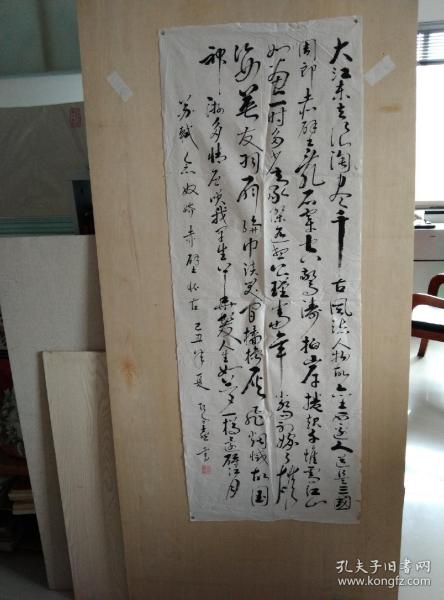 大江东去浪淘尽千古风流人物故垒西边人道是三国
周郎赤壁乱石穿空惊涛拍岸捲起千堆雪江山
如画一时多少豪杰遥想公瑾当年小乔初嫁了雄
姿英发羽扇纶巾谈笑间樯橹灰飞烟灭故国
神游多情应笑我早生华发人生如梦一樽还酹江月
苏轼念奴娇赤壁怀古 己丑年夏
孔夫子旧书网
www.kongfz.com